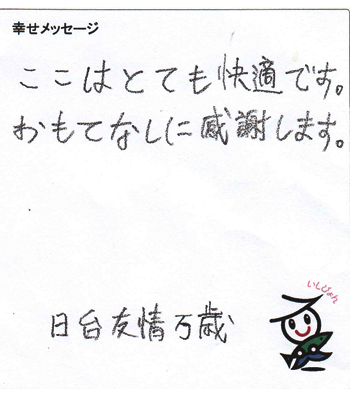 幸せメッセージ
ここはとても快適です。
おもてなしに感謝します。
いしぴょん
日台友情万歳